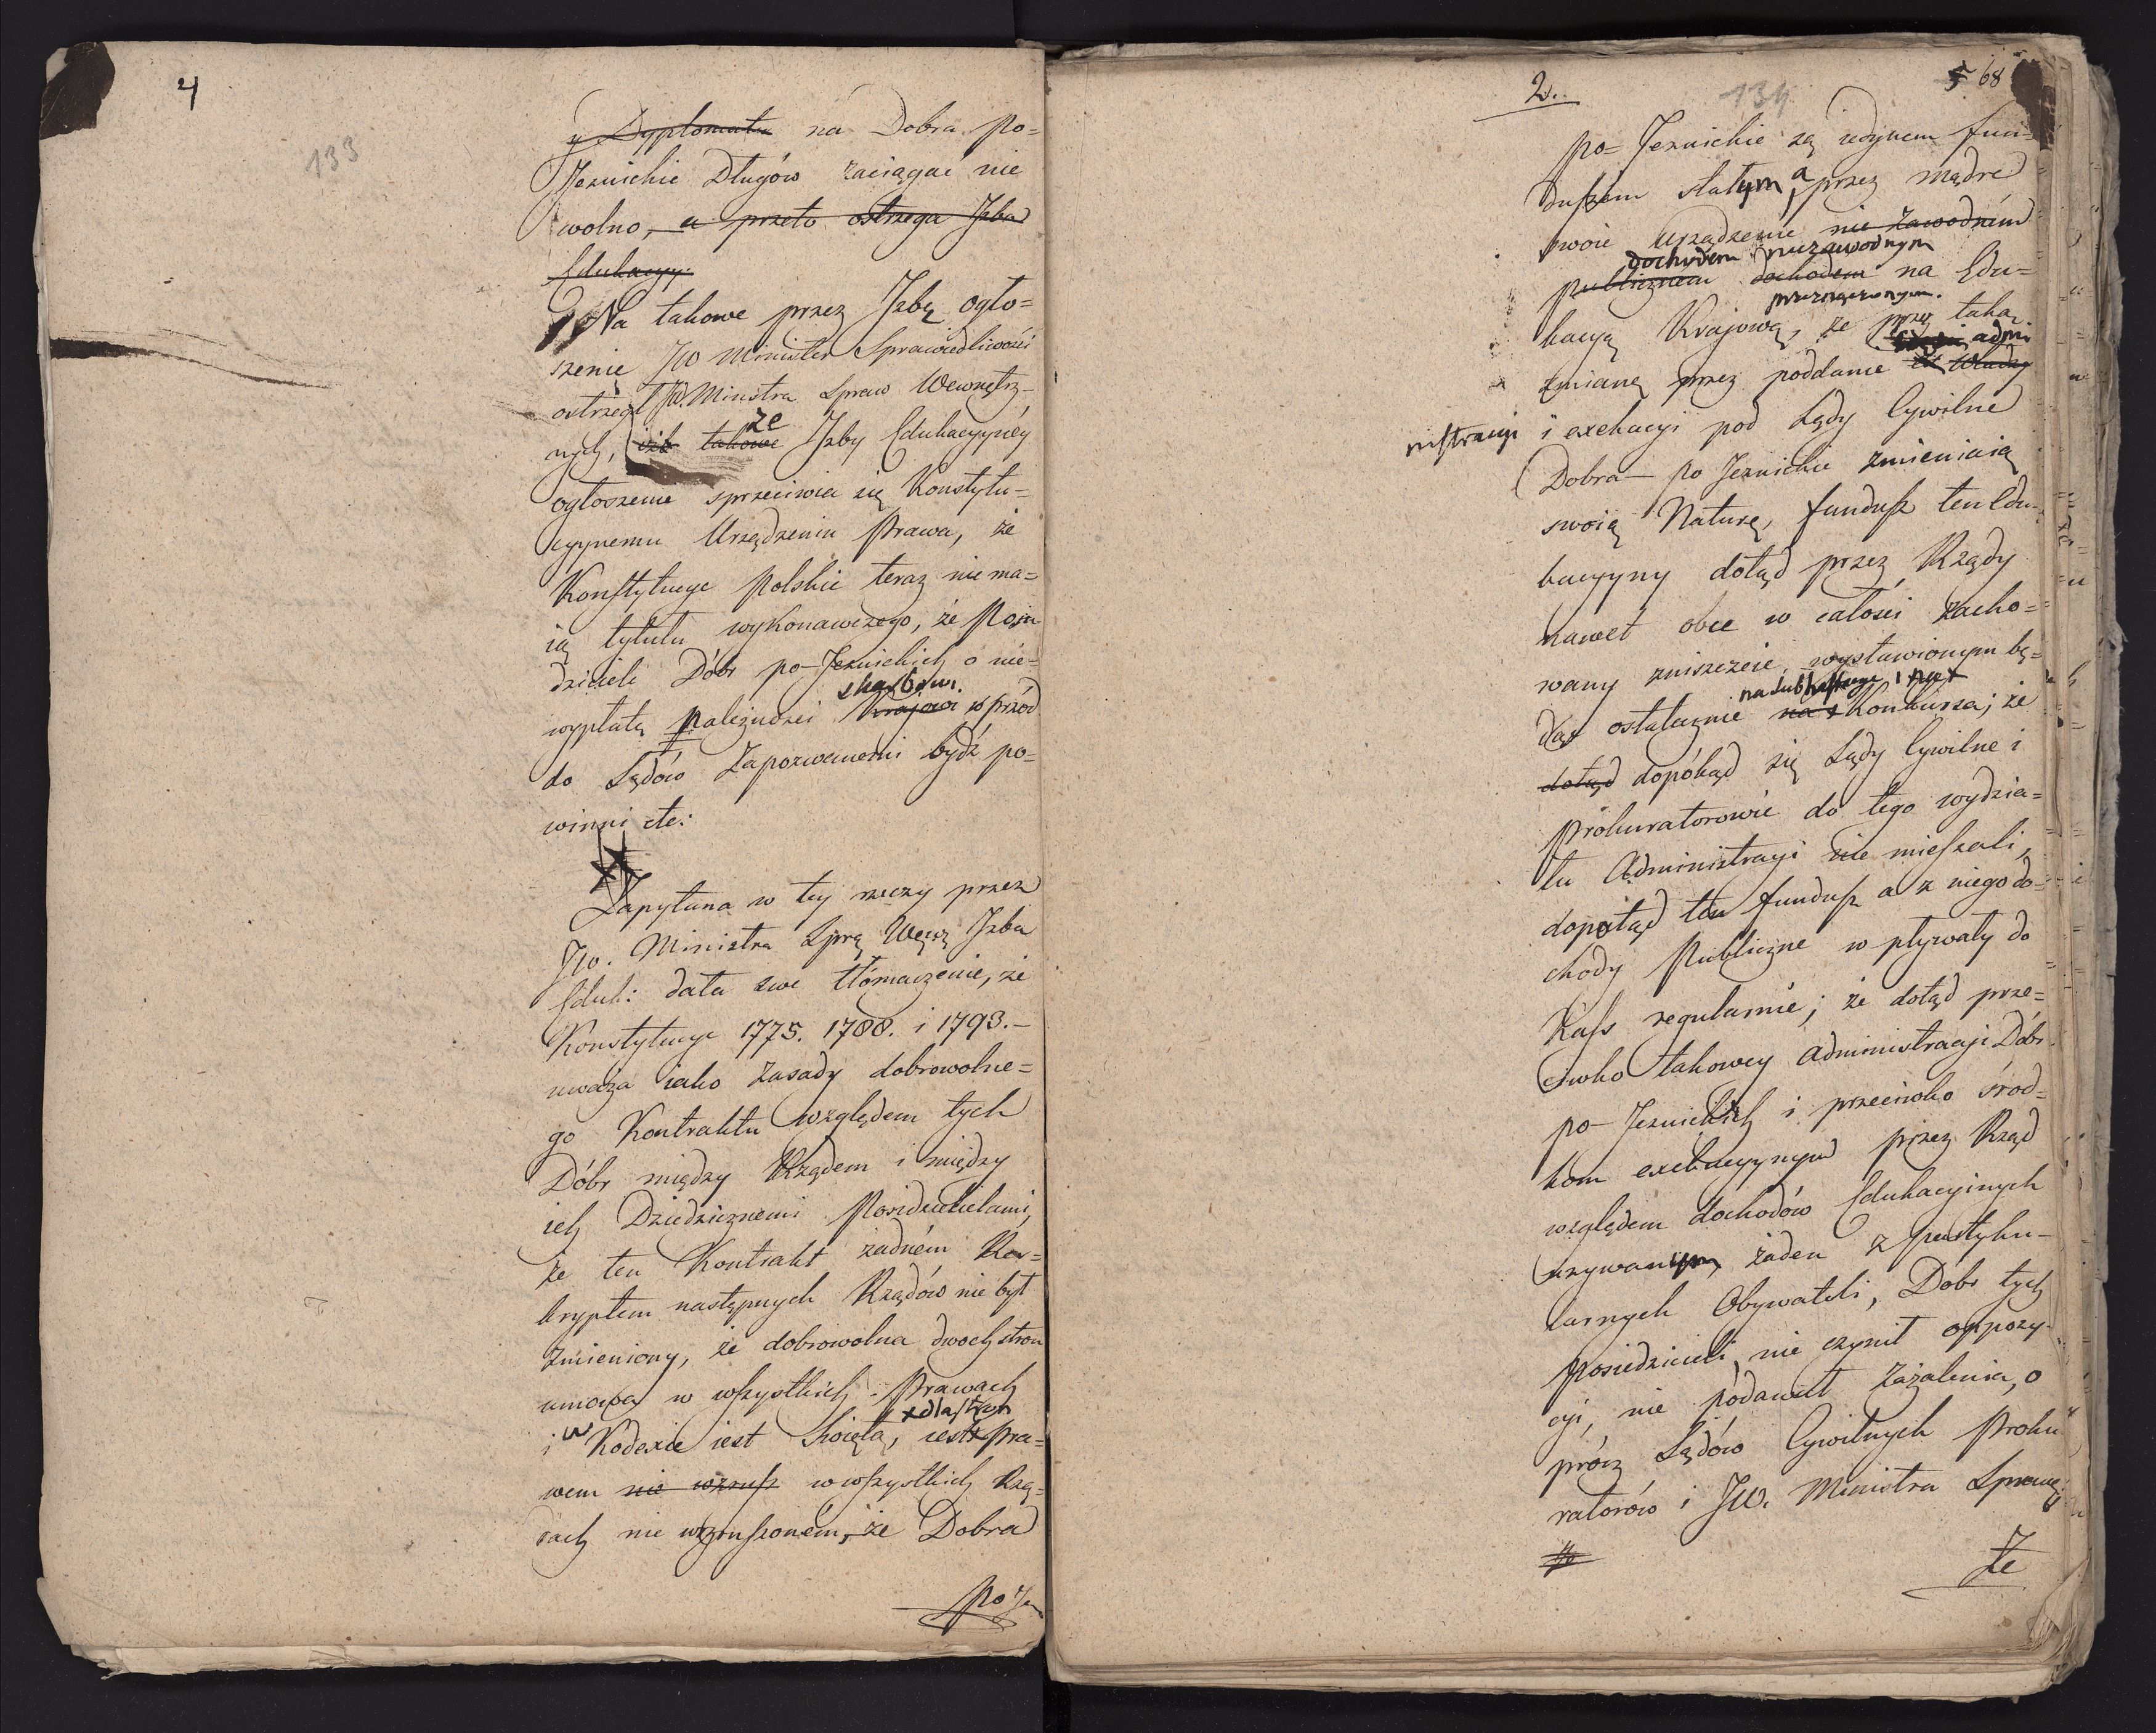 4
133
y Dyplomata na Dobra po=
Jezuickie Długów zaciągać nie
wolno, a przeto ostrzega Izba
Edukacyy.
Na takowe przez Izbę ogło=
szenie JW Minister Sprawiedliwości
ostrzegł JW. Ministra Spraw Wewnętrz-
nych, iż takowe że Izby Edukacyyney
ogłoszenie sprzeciwia się Konstytu=
cyynemu Urządzeniu Prawa, że
Konstytucye Polskie teraz nie ma=
ią tytułu wykonawczego, że Posia
dziciele Dóbr po-Jezuickich o nie=
wypłatę należności Krajowi skarbowi wprzód
do Sądów Zapozwanemi bydź po=
winni etc:
Zapytana w tey rzeczy przez
JW. Ministra Spra Wewn Izba
Eduk: dała swe tłómaczenie, że
Konstytucye 1775. 1788. i 1793.-
uważa iako Zasady dobrowolne=
go Kontraktu względem tych
Dóbr między Rządem i między
ich Dziedzicznemi Posiedzicielami,
że ten Kontrakt żadném Res=
kryptem następnych Rządów nie był
Zmieniony, że dobrowolna dwoch stron
umowa w wszystkich Prawach
i w Kodexie iest Święta, iest x dla stron Pra=
wem nie wzrusz w wszystkich Rzą=
dach nie wzruszoném, że Dobra
po Je
2.
134
5 68
po=Jezuickie są iedynem fun=
duszem stałym, a przez mądre
swoie Urządzenie nie zawodném
publicznem dochodem dochodem niezawodnym na Edu=
kacyą Krajową przeznaczonym, że przez taką
zmianę przez poddanie ich Władzy admi
nistracyi i exekucyi pod Sądy Cywilne
Dobra po Jezuickie zmieniaią
swoią Naturę, fundusz ten Edu
kacyyny dotąd przez Rządy
nawet obce w całości zacho=
wany zniszczeie, wystawionym bę=
dąc ostatecznie na na subhastacye i na Konkursa; że
dotąd dopókąd się Sądy Cywilne i
Prokuratorowie do tego wydzia=
łu Administracyi nie mieszali,
dopotąd ten fundusz a z niego do=
chody Publiczne wpływały do
Kass regularnie; że dotąd prze=
ciwko takowey Administracyi Dóbr
po-Jezuickich i przeciwko środ=
kom exekucyynym przez Rząd
względem dochodów Edukacyinych
używanym, żaden z partyku-
larnych Obywateli, Dóbr tych
Posiedzicieli nie czynił oppozy-
cyi, nie podawał Zażalenia, o
prócz Sądów Cywilnych Proku
ratorów i JW. Ministra Spraw
że
Że